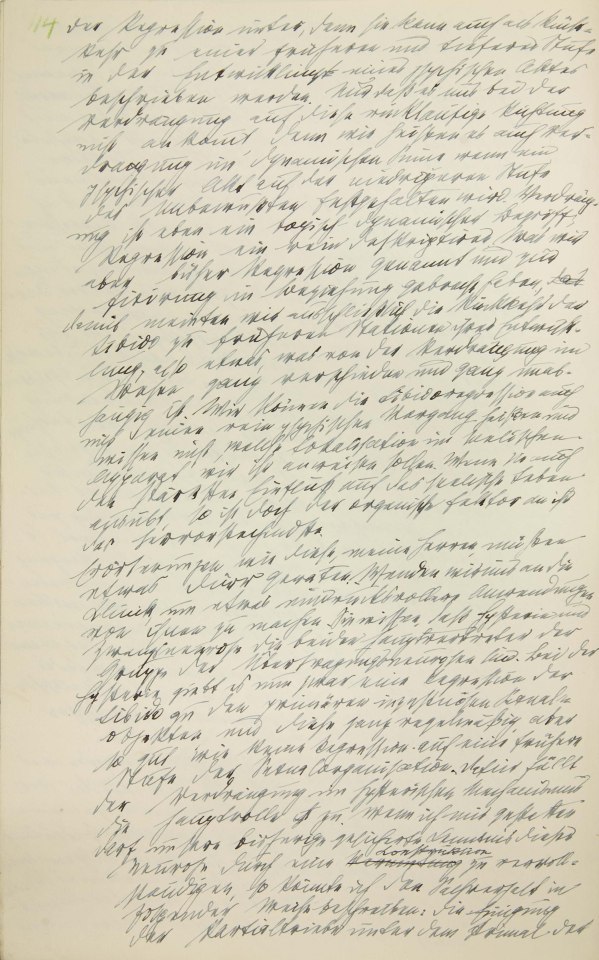 114
der Regression unter, denn sie kann auch als Rück-
kehr zu einer früheren und tieferen Stufe
in der Entwicklung eines psychischen Aktes
beschrieben werden. Nur daß es uns bei der
Verdrängung auf diese rückläufige Richtung
nicht ankomt, denn wir heißen es auch Ver-
drängung im dynamischen Sinne wenn ein
psychischer Akt auf der niedrigeren Stufe
des Unbewußten festgehalten wird. Verdrän-
gung ist eben ein topisch dynamischer Begriff,
Regression ein rein deskriptiver. Was wir
aber bisher Regression genannt und zur
Fixirung in Beziehung gebracht haben,
damit meinten wir ausschließlich die Rückkehr der
Libido zu früheren Stationen ihrer Entwick-
lung, also etwas, was von der Verdrängung im
Wesen ganz verschieden und ganz unab-
hängig ist. Wir können die Libidoregression auch
nicht einen rein psychischen Vorgang heißen und
wissen nicht, welche Lokalisation im seelischen
Apparat wir ihr anweisen sollen. Wenn sie auch
den stärksten Einfluß auf das seelische Leben
ausübt, so ist doch der organische Faktor an ihr
der hervorstechendste.
Erörterungen wie diese, meine Herren müßen
etwas dürr geraten. Wenden wir uns an die
Klinik um etwas eindrucksvollere Anwendungen
von ihnen zu machen. Sie wissen, daß Hysterie und
Zwangsneurose die beiden Hauptvertreter der
Gruppe der Übertragungsneurosen sind. Bei der
Hysterie giebt es nun zwar eine Regression der
Libido zu den primären inzestuösen Sexual-
objekten und diese ganz regelmäßig, aber
so gut wie keine Regression auf eine frühere
Stufe der Sexualorganisation. Dafür fällt
der Verdrängung im hysterischen Mechanismus
die Hauptrolle zu. Wenn ich mir gestatten
darf, unsere bisherige gesicherte Kenntnis dieser
Konstruktion
Neurose durch eine zu vervoll-
ständigen, so könnte ich den Sachverhalt in
folgender Weise beschreiben: Die Einigung
der Partialtriebe unter dem Primat der